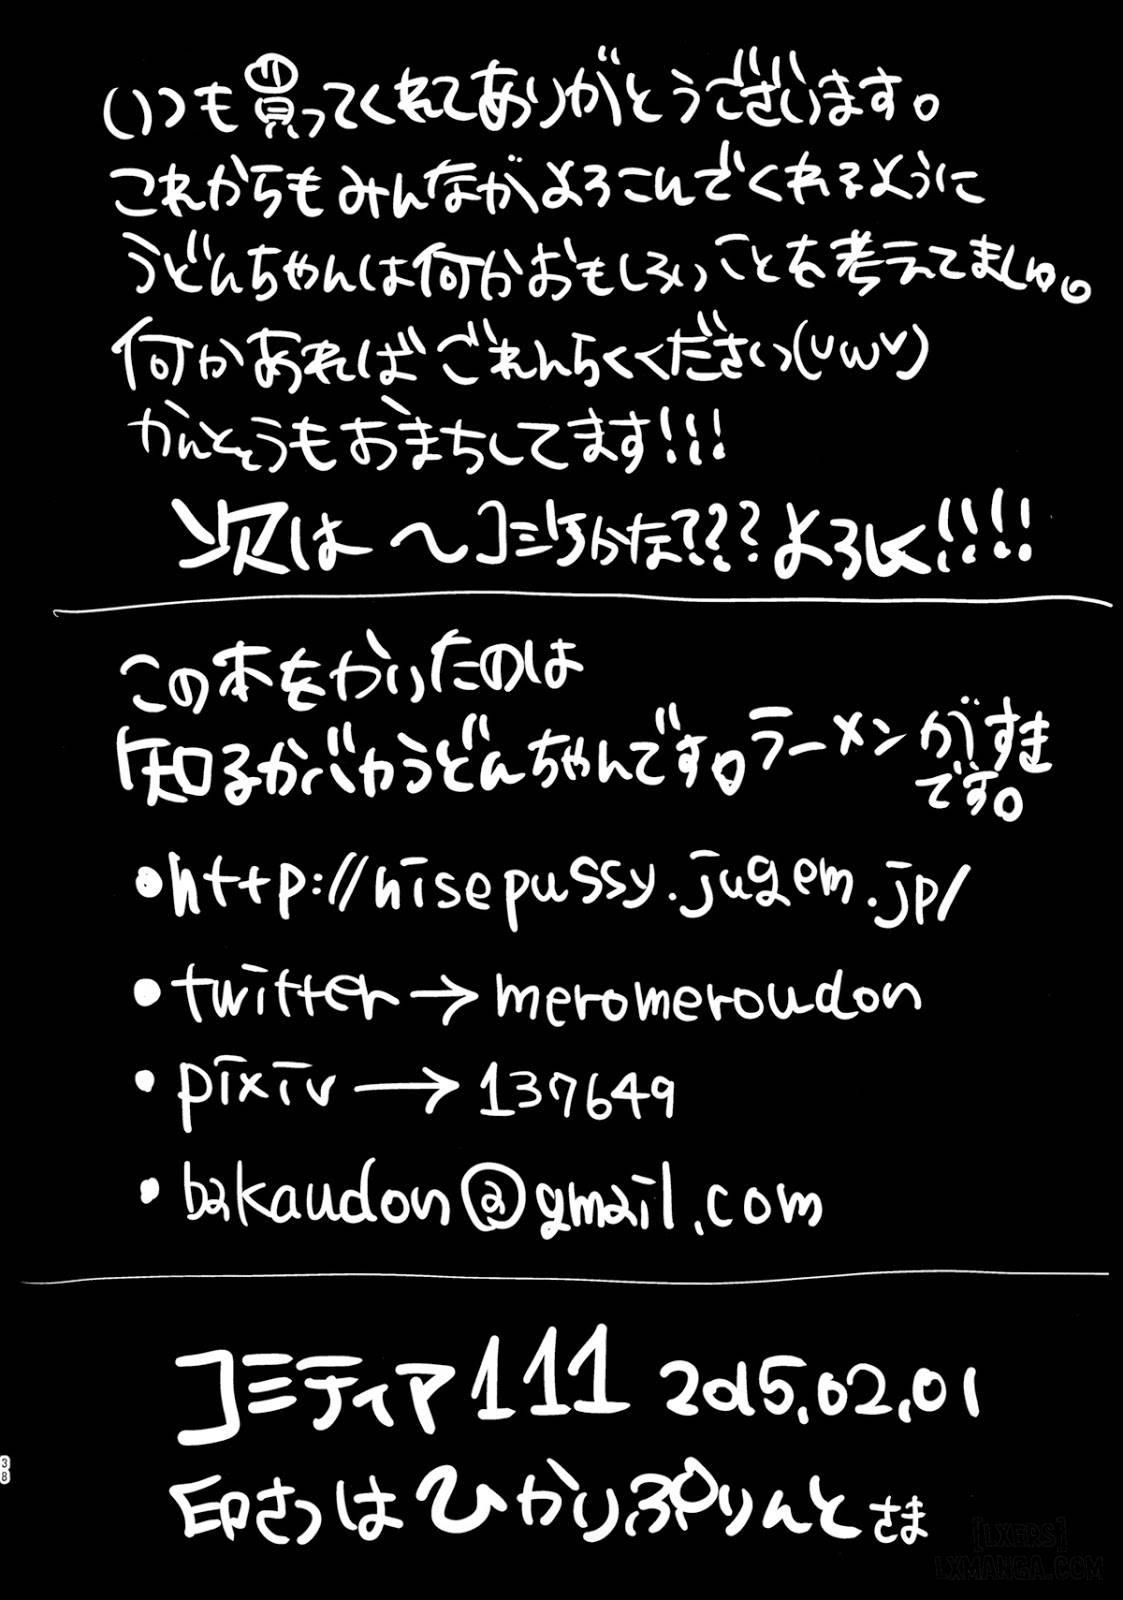 いつも買ってくれてありがとうございます。
これからもみんながよろこんでくれるように
うどんちゃんは何かおもしろいことを考えてましゅ。
何かあればごれんらくください(vωv)
かんそうもおまちしてます!!!
次は 〜コミケかな???よろしく!!!!
この本をかいたのは
知るかバカうどんちゃんです。ラーメンがすき
です。
●http://nisepussy.jugem.jp/
●twitter→meromeroudon
・pixiv→137649
・bakaudon@gmail.com
コミティア111 2015.02.01
印さつはひかりぷりんとさま
38
[LXERS]
LXMANGA.COM